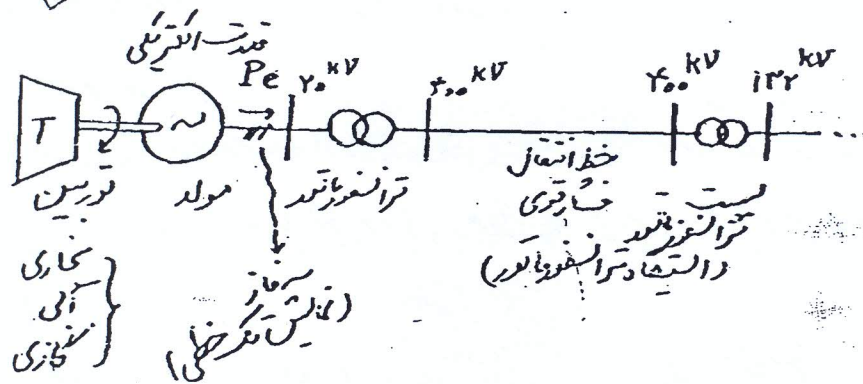 قدرت الکتریکی
Pe
۲۰ kV
۴۰۰ kV
۴۰۰ kV
۱۳۲ kV
T
~
...
توربین
مولد
ترانسفورماتور
خط انتقال
فشار قوی
پست
ترانسفورماتور
(ایستگاه ترانسفورماتور)
بخاری
آبی
گازی
سه فاز
(نمایش تک خطی)